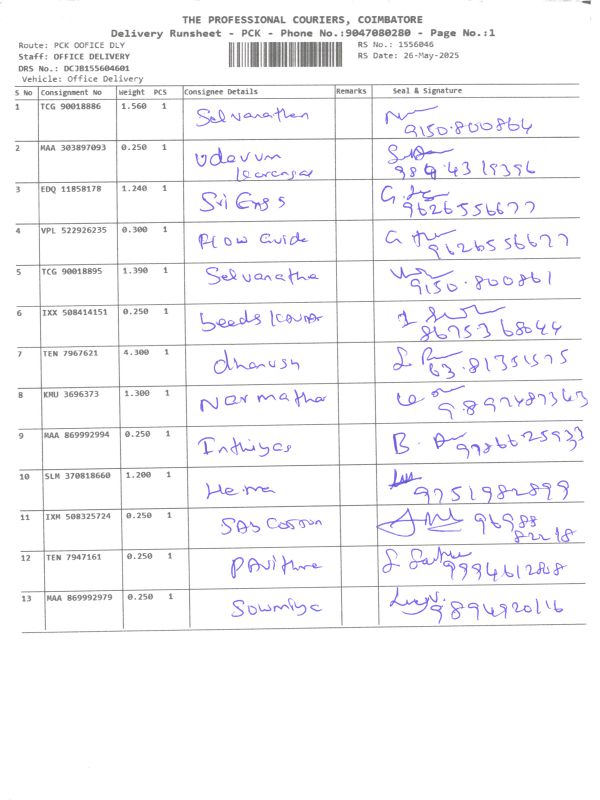 THE PROFESSIONAL COURIERS, COIMBATORE
Delivery Runsheet - PCK - Phone No.:9047080280 - Page No.:1
Route: PCK OOFICE DLY
RS No.: 1556046
Staff: OFFICE DELIVERY
RS Date: 26-May-2025
DRS No.: DCJB155604601
Vehicle: Office Delivery
S No Consignment No Weight PCS Consignee Details Remarks Seal & Signature
1 TCG 90018886 1.560 1 Selvanathan
9150.800864
2 MAA 303897093 0.250 1 Udavum
3 EDQ 11858178 1.240 1 Sri Engs
9626556677
4 VPL 522926235 0.300 1 Flow Guide
9626556677
5 TCG 90018895 1.390 1 Selvanatha
9150.800861
6 IXX 508414151 0.250 1
8675368044
7 TEN 7967621 4.300 1 dhanush
63.81351575
8 KMU 3696373 1.300 1 Narmatha
9897487363
9 MAA 869992994 0.250 1 Inthiyas
9786625933
10 SLM 370818660 1.200 1 Hema
9751982899
11 IXM 508325724 0.250 1
96988
82218
12 TEN 7947161 0.250 1 PAVithra
13 MAA 869992979 0.250 1 Sowmiya
9894920116